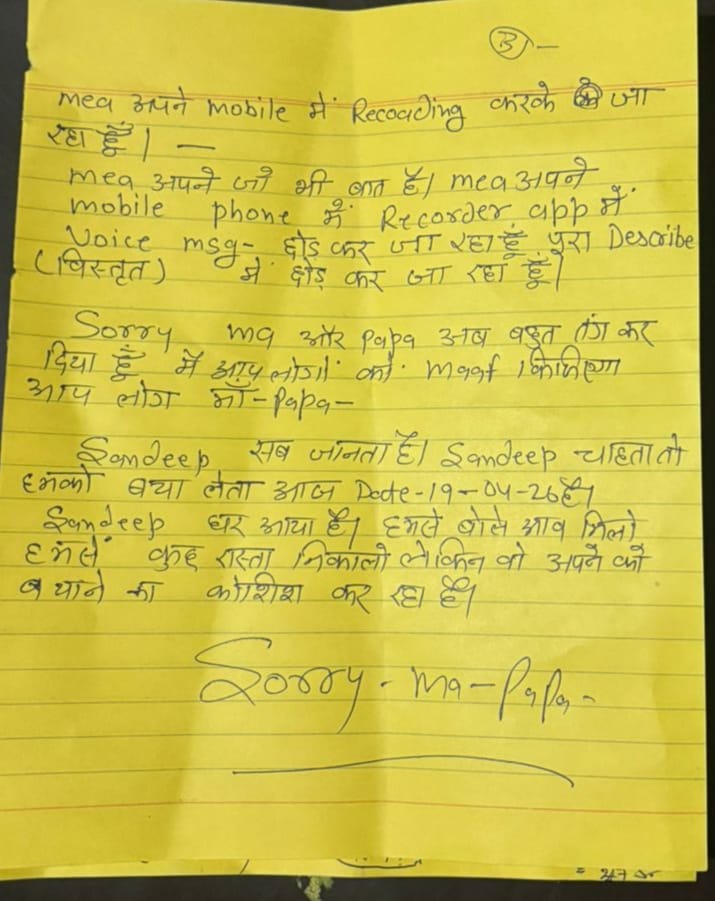 (B) —
mea अपने mobile में Recoading करके जा
रहा हूँ। —
mea अपने जो भी बात है। mea अपने
mobile phone में Recorder app में
Voice msg- छोड़ कर जा रहा हूँ पुरा Describe
(विस्तृत) में छोड़ कर जा रहा हूँ।
Sorry ma और Papa अब बहुत तंग कर
दिया हूँ में आप लोगों को. maaf किजिएगा
आप लोग माँ-Papa-
Sandeep सब जानता है। Sandeep चाहता तो
हमको बचा लेता आज Date-19-04-26 है।
Sandeep घर आया है। हमसे बोले आव मिलो
हमसे कुछ रास्ता निकालो लेकिन वो अपने को
बचाने का कोशिश कर रहा है।
Sorry - Ma - Papa -